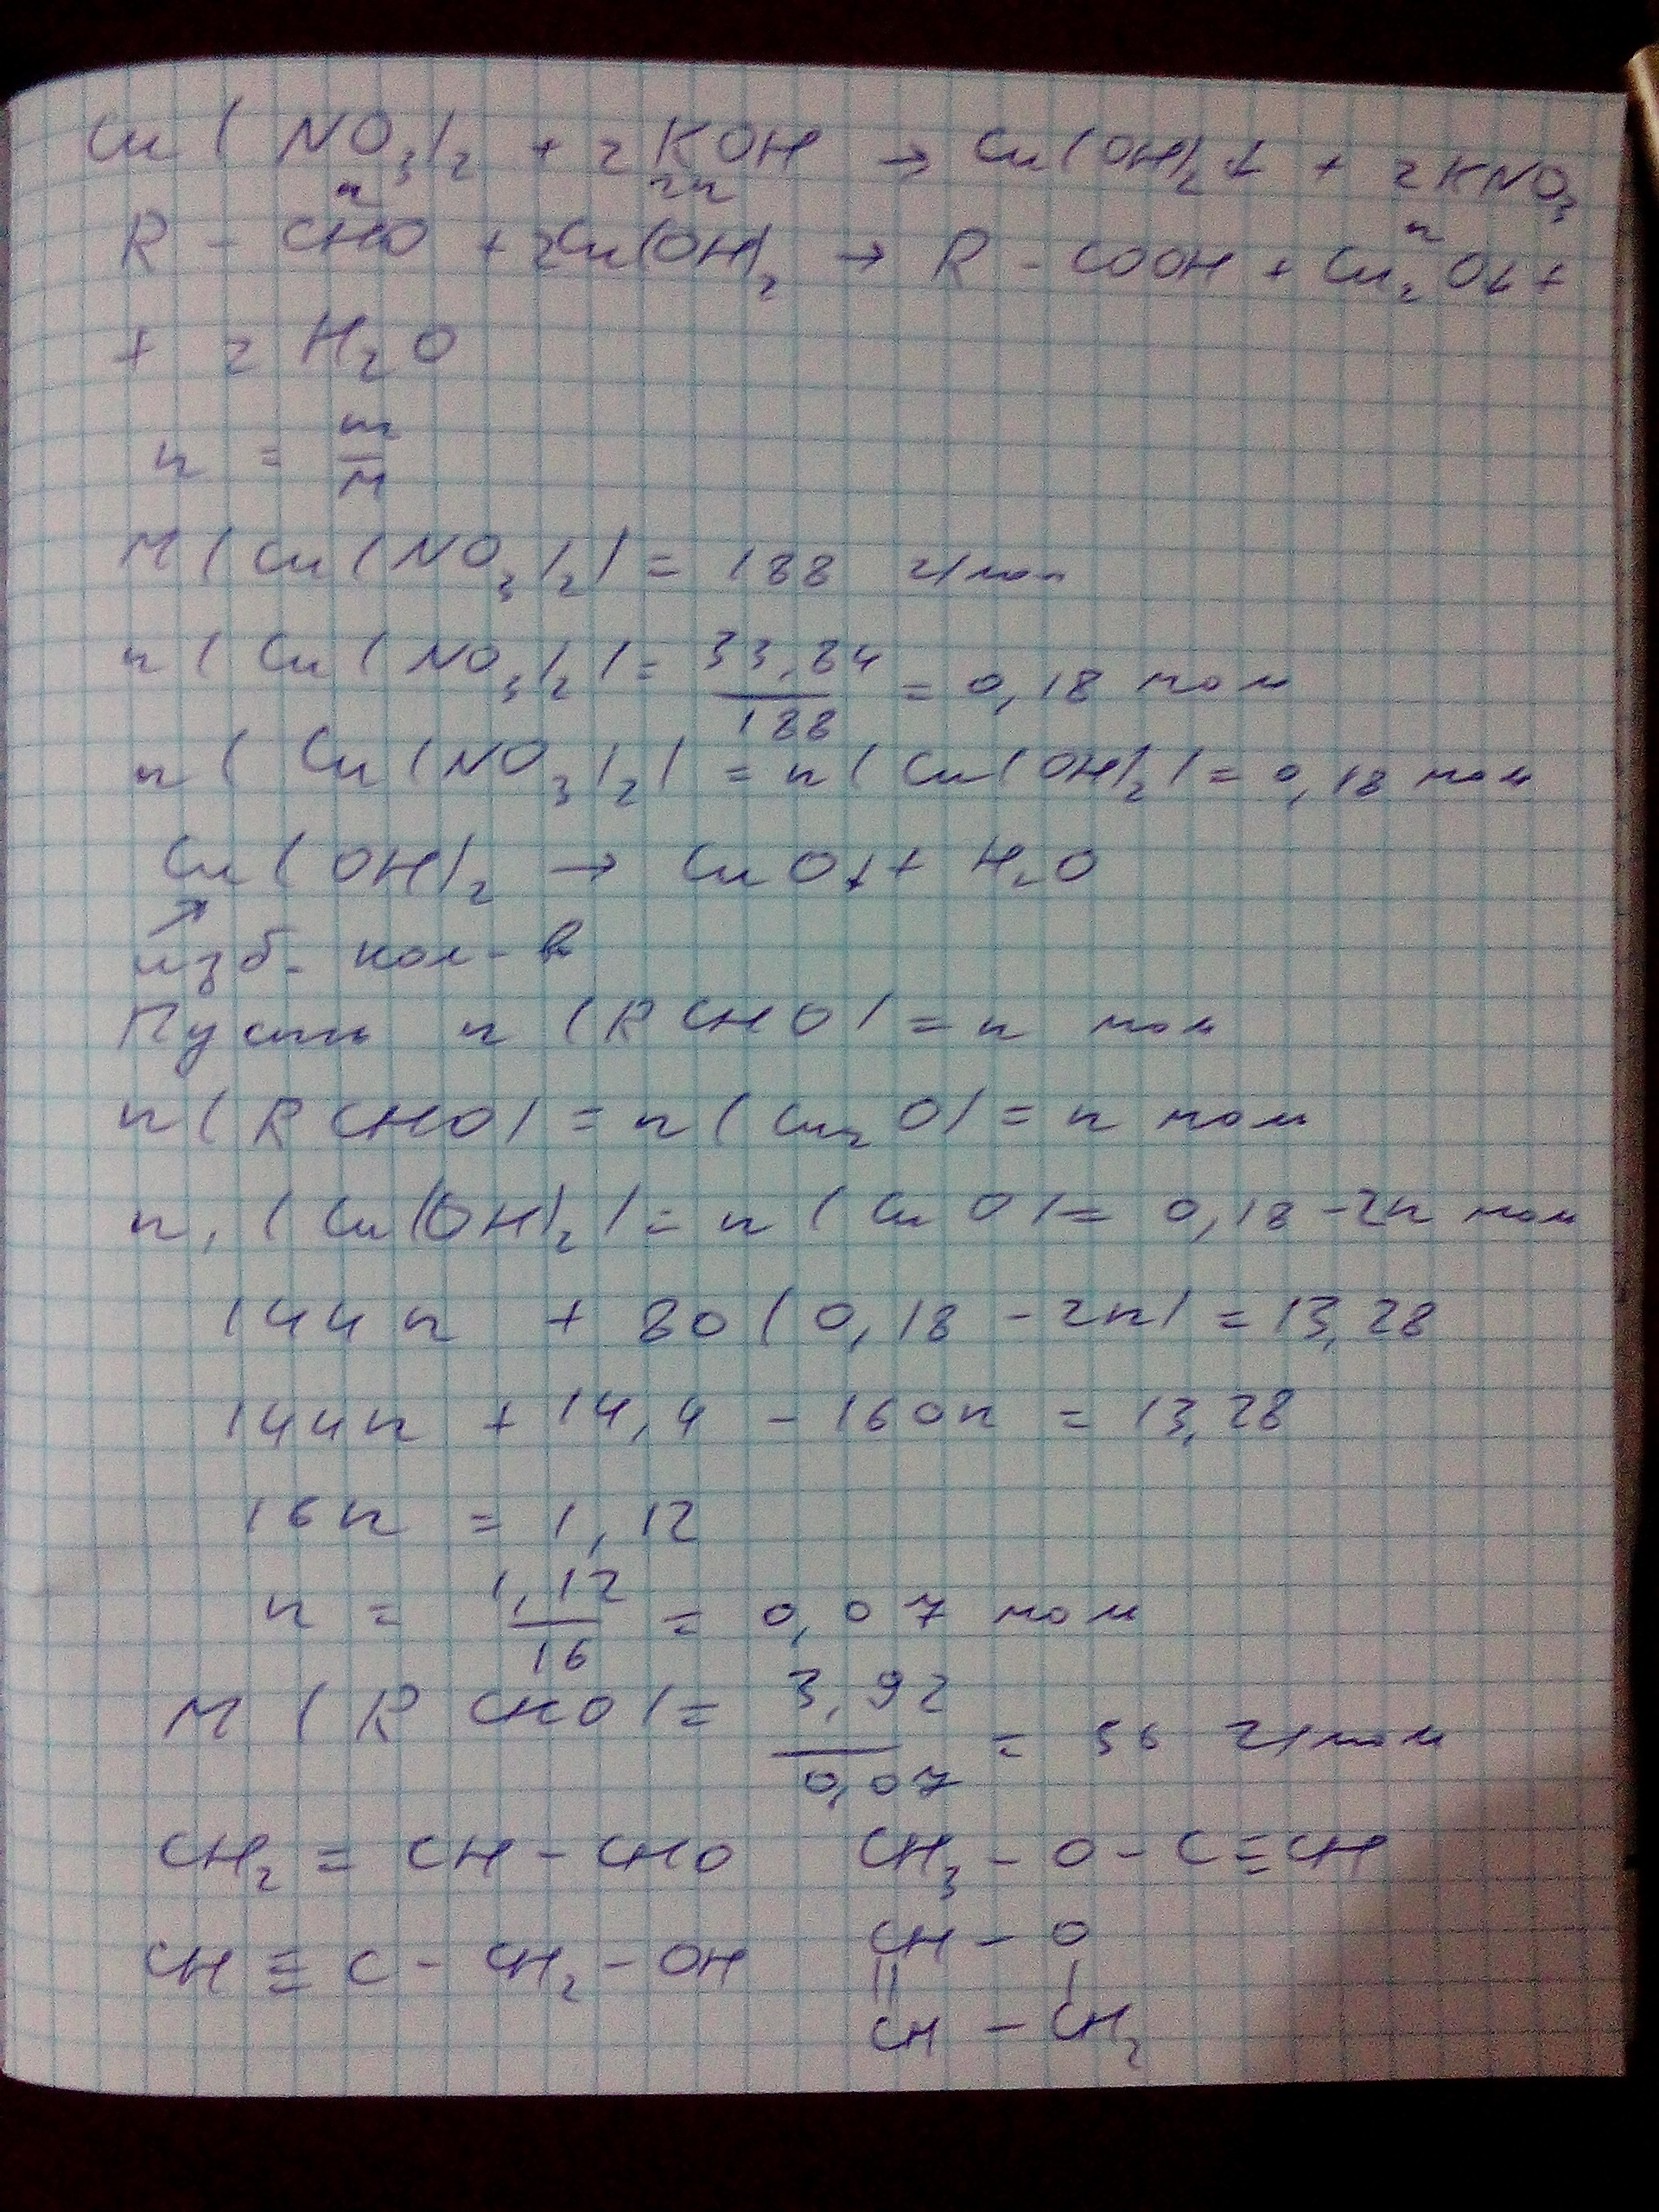 Cu(NO₃)₂ + 2KOH → Cu(OH)₂↓ + 2KNO₃
n 2n n
R - CHO + 2Cu(OH)₂ → R - COOH + Cu₂O↓ +
+ 2H₂O
n = m/M
M(Cu(NO₃)₂) = 188 г/мол
n(Cu(NO₃)₂) = 33,84/188 = 0,18 моль
n(Cu(NO₃)₂) = n(Cu(OH)₂) = 0,18 моль
Cu(OH)₂ → CuO↓ + H₂O
↗
изб. кол-в
Пусть n(RCHO) = n моль
n(RCHO) = n(Cu₂O) = n моль
n₁(Cu(OH)₂) = n(CuO) = 0,18 - 2n моль
144n + 80(0,18 - 2n) = 13,28
144n + 14,4 - 160n = 13,28
16n = 1,12
n = 1,12/16 = 0,07 моль
M(RCHO) = 3,92/0,07 = 56 г/моль
CH₂ = CH - CHO CH₃ - O - C ≡ CH
CH ≡ C - CH₂ - OH CH - O
|| |
CH - CH₂